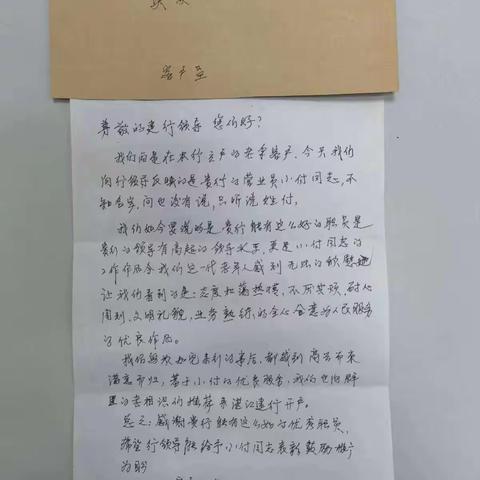 客户至
尊敬的建行领导 您们好?
我们两是在本行立户的老年客户、今天我们
向行领导反映的是贵行的营业员小付同志,不
知名字,问也没有说,只听说姓付。
我们如今要说的是,贵行能有这么好的职员是
贵行的领导有高超的领导水平,更是小付同志的
工作作风令我们这一代老年人感到无比的欣慰
让我们看到的是:态度和蔼热情,不厌其烦,耐心
周到、文明礼貌,业务熟练,的全心全意为人民服务
的优良作风。
我们每次如见亲到的事后,都感到高兴而来
满意而归,基于小付的优质服务,我们也向群
里的老相识们推荐来湛江建行开户。
总之:感谢贵行能有这么好的优秀职员,
希望行领导能给予小付同志表彰鼓励推广
为盼